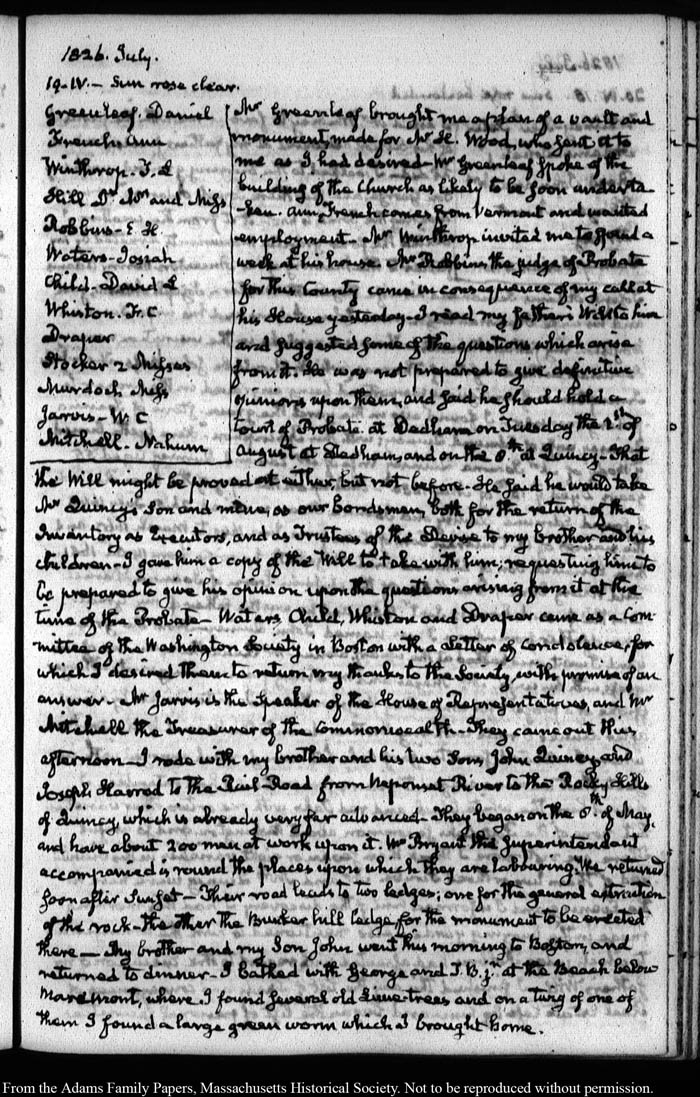 1826. July.
19. IV. – Sun rose clear.
Greenleaf. Daniel
French. Ann
Winthrop. T. L
Hill Dr. Mrs and Miss
Robbins – E. H.
Waters – Josiah
Child – David L
Whiston. Fr. C
Draper
Stocker 2 Misses
Murdoch Miss
Jarvis – W. C
Mitchell – Nahum
Mr Greenleaf brought me a plan of a vault and
monument, made for Mr H. Wood, who sent it to
me as I had desired – Mr Greenleaf spoke of the
building of the Church as likely to be soon underta
-ken. Ann French comes from Vermont and wanted
employment – Mr Winthrop invited me to spend a
week at his house. Mr Robbins the judge of Probate
for this County came in consequence of my call at
his House yesterday – I read my father's Will to him
and suggested some of the questions which arise
from it. He was not prepared to give definitive
opinions upon them, and said he should hold a
Court of Probate at Dedham on Tuesday the 1st of
August at Dedham, and on the 8th at Quincy – That
the Will might be proved at either, but not before – He said he would take
Mr Quincy's Son and mine, as our bondsmen, both for the return of the
Inventory as Executors, and as Trustees of the Devise to my brother and his
children – I gave him a copy of the Will to take with him; requesting him to
be prepared to give his opinion upon the questions arising from it at the
time of the Probate – Waters, Child, Whiston and Draper came as a Com-
mittee of the Washington Society in Boston with a Letter of Condolence, for
which I desired them to return my thanks to the Society, with promise of an
answer – Mr Jarvis is the Speaker of the House of Representatives, and Mr
Mitchell the Treasurer of the Commonwealth – They came out this
afternoon – I rode with my brother and his two Sons, John Quincy, and
Joseph Harrod to the Rail-Road from Neponset River to the Rocky Hills
of Quincy, which is already very far advanced – They began on the 8th of May,
and have about 200 men at work upon it. Mr Bryant the Superintendent
accompanied us round the places upon which they are labouring. We returned
soon after Sunset – Their road leads to two ledges; one for the general extraction
of the rock – the other the Bunker hill ledge for the monument to be erected
there – My brother and my Son John went this morning to Boston, and
returned to dinner – I bathed with George and T. B. jr. at the Beach below
Mare mont, where I found several old Lime-trees and on a twig of one of
them I found a large green worm which I brought home.
From the Adams Family Papers, Massachusetts Historical Society. Not to be reproduced without permission.